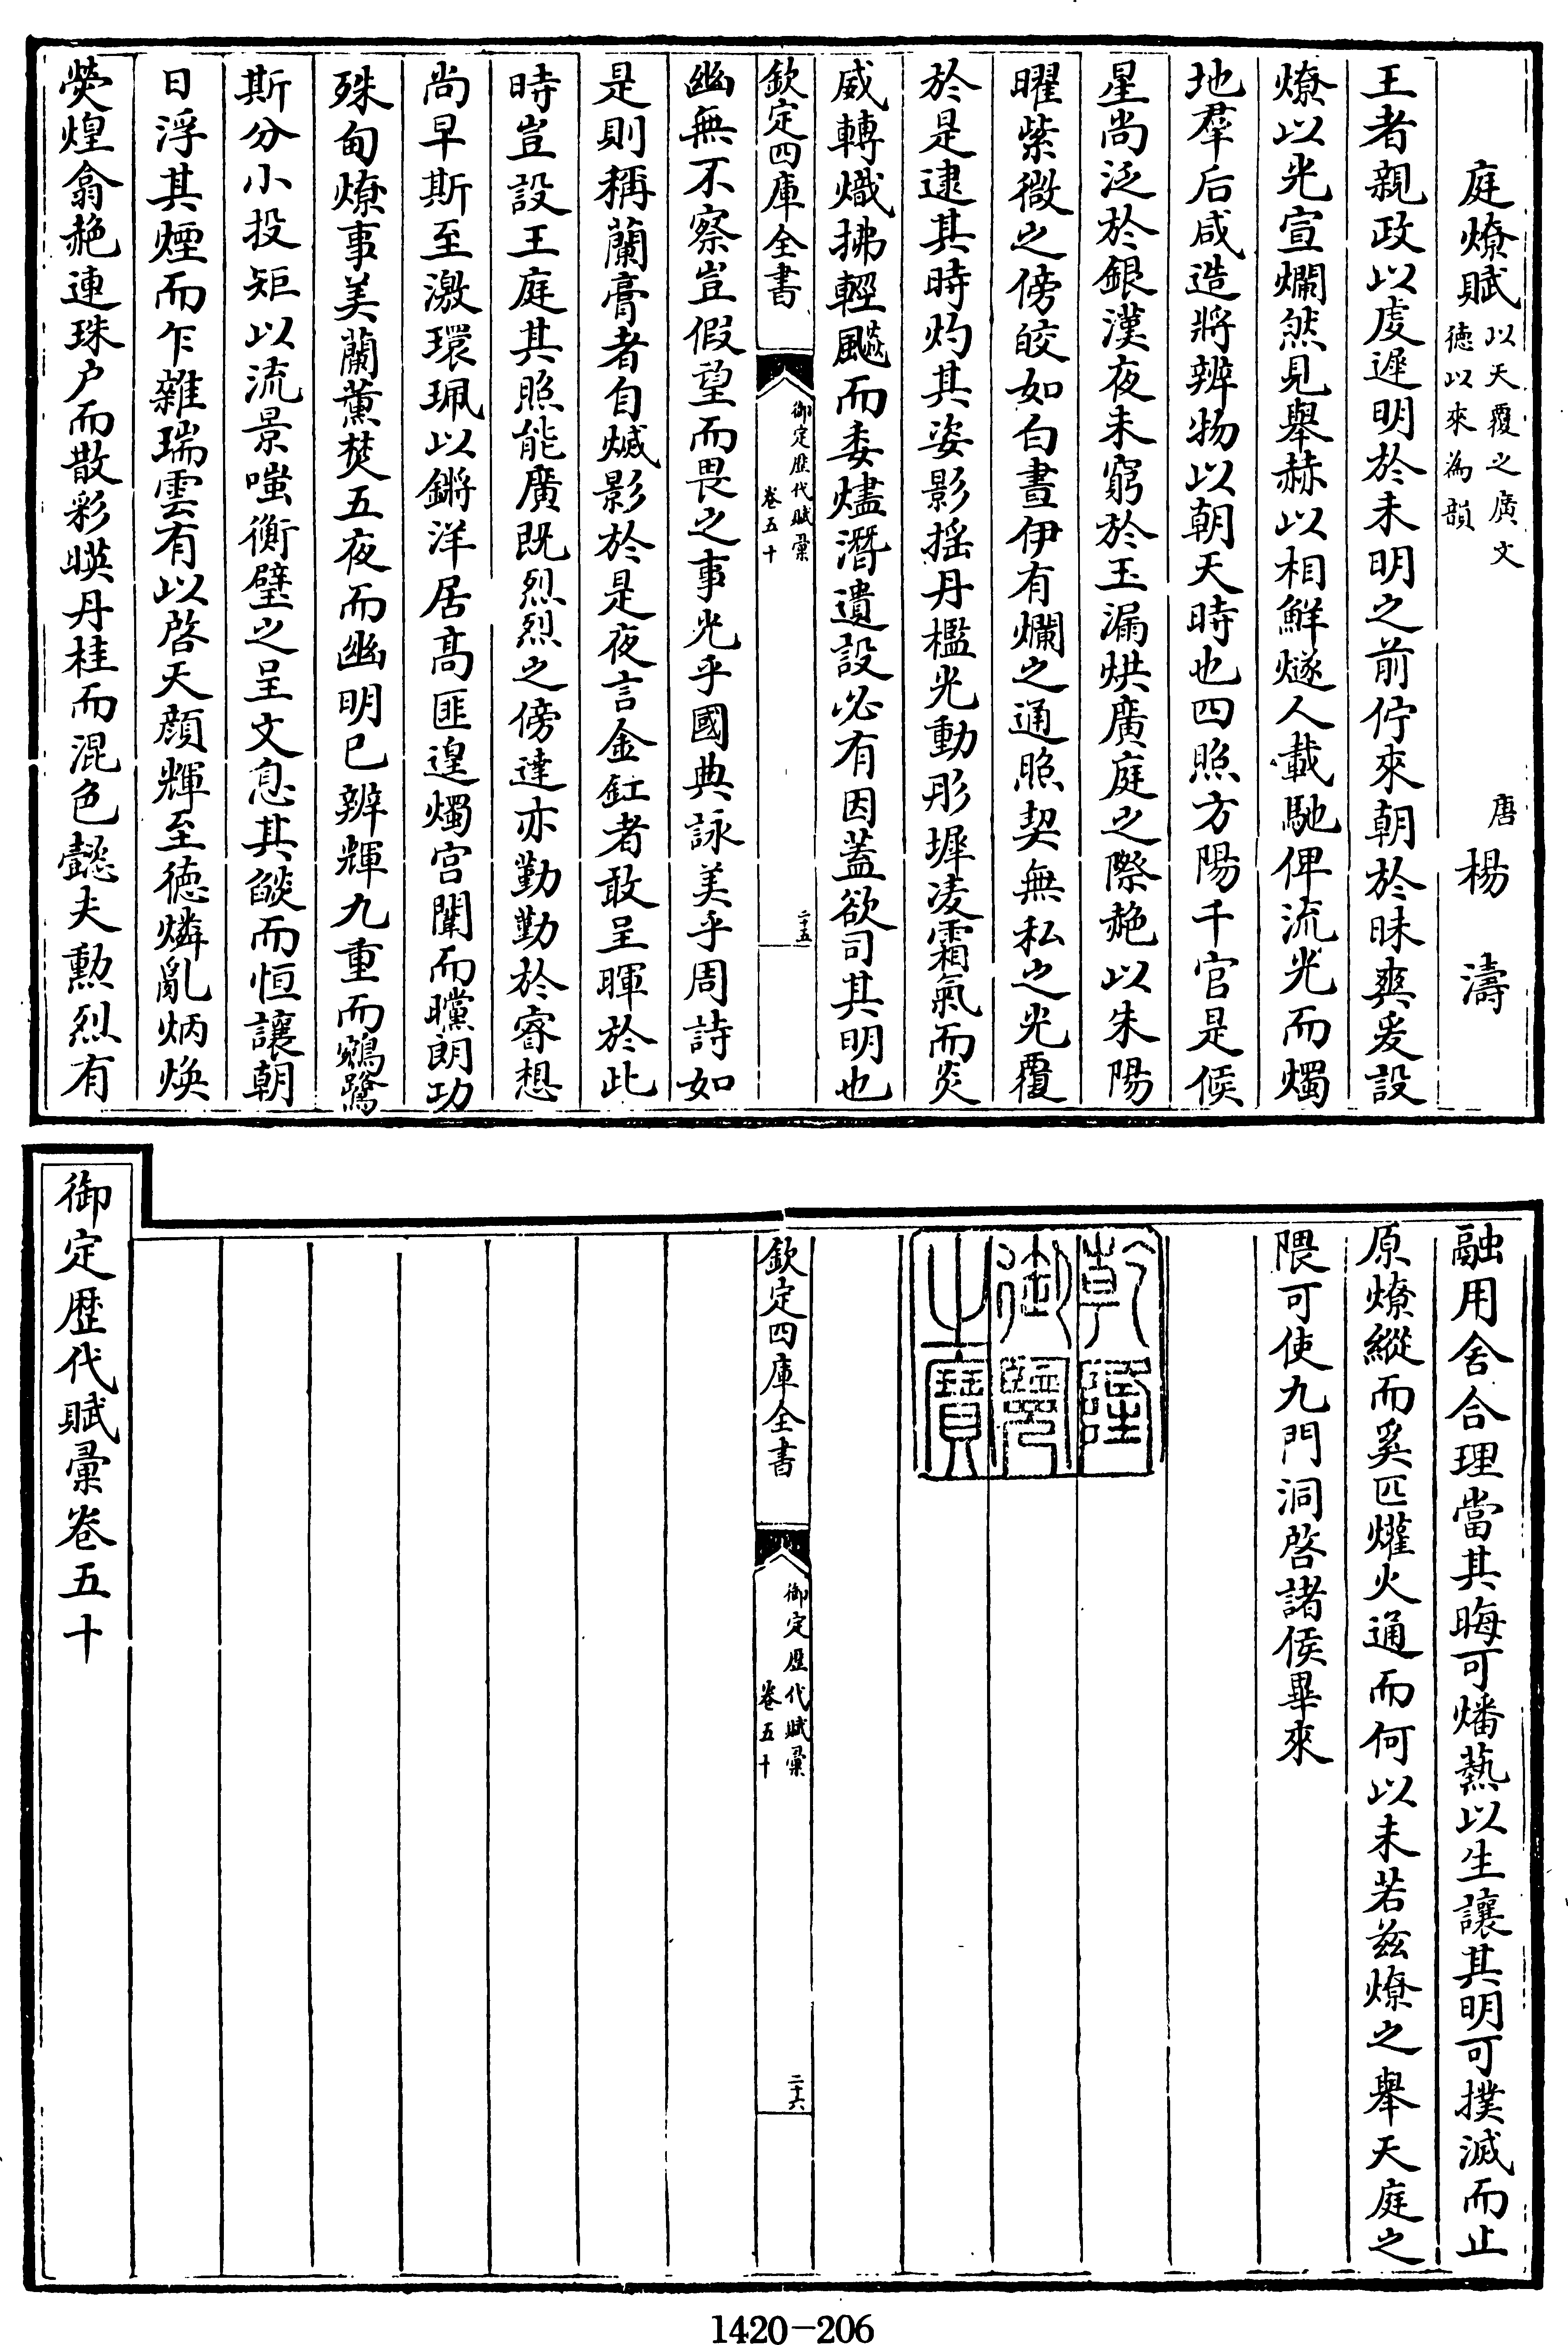 庭燎賦以天覆之廣文德以來為韻 唐楊濤
王者親政以虔遲明於未明之前佇來朝於昧爽爰設
燎以光宣爛然見舉赫以相鮮燧人載馳俾流光而燭
地羣后咸造將辨物以朝天時也四照方陽千官是候
星尚泛於銀漢夜未窮於玉漏烘廣庭之際赩以朱陽
曜紫微之傍皎如白晝伊有爛之通照契無私之光覆
於是逮其時灼其姿影搖丹檻光動彤墀凌霜氣而炎
威轉熾拂輕飈而委燼潛遺設必有因蓋欲司其明也
欽定四庫全書 御定歷代賦彙卷五十 二十五
幽無不察豈假望而畏之事光乎國典詠美乎周詩如
是則稱蘭膏者自㷕影於是夜言金釭者敢呈暉於此
時豈設王庭其照能廣既烈烈之傍達亦勤勤於睿想
尚早斯至激環珮以鏘洋居高匪遑燭宮闈而曭朗功
殊甸燎事美蘭薰焚五夜而幽明已辨輝九重而鵷鷺
斯分小投矩以流景嗤衡璧之呈文息其燄而恒讓朝
日浮其煙而乍雜瑞雲有以啓天顔輝至德燐亂炳煥
熒煌翕赩連珠戶而散彩暎丹桂而混色懿夫勲烈有
融用舍合理當其晦可燔爇以生讓其明可撲滅而止
原燎縱而奚匹爟火通而何以未若兹燎之舉天庭之
隈可使九門洞啓諸侯畢來
乾隆御覽之寶
欽定四庫全書 御定歷代賦彙卷五十 二十六
御定歷代賦彙卷五十
1420-206